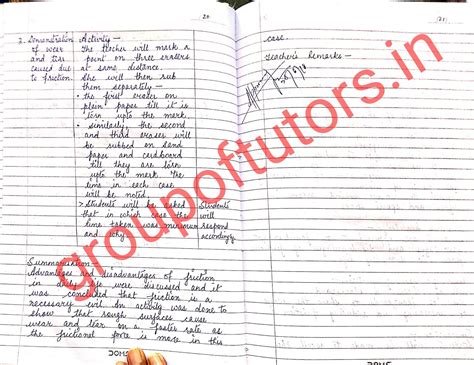 20
3. Demonstration Activity -
of wear The teacher will mark a
and tear point on three erasers
caused due at same distance.
to friction. She will then rub
them separately -
• the first eraser on
plain paper till it is
torn upto the mark
• similarly, the second
and third erasers will
be rubbed on sand
paper and cardboard
till they are torn
upto the mark. The
time in each case
will be noted.
> Students will be asked Students
that in which case the will
time taken was minimum respond
and why accordingly
Summarisation -
Advantages and disadvantages of friction
in daily life were discussed and it
was concluded that friction is a
necessary evil. An activity was done to
show that rough surfaces cause
wear and tear on a faster rate as
the frictional force is more in this
DOMS
21
case.
Teacher's Remarks -
DOMS
groupoftutors.in